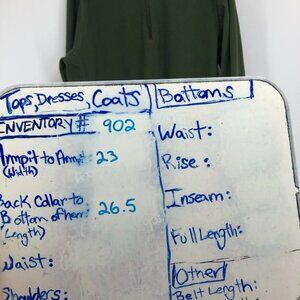 Tops, Dresses, Coats
INVENTORY # 902
Armpit to Armpit: 23
(Width)
Back Collar to
Bottom of hem: 26.5
(Length)
Waist:
Shoulders:
Bottoms
Waist:
Rise:
Inseam:
Full Length:
Other
Belt Length: